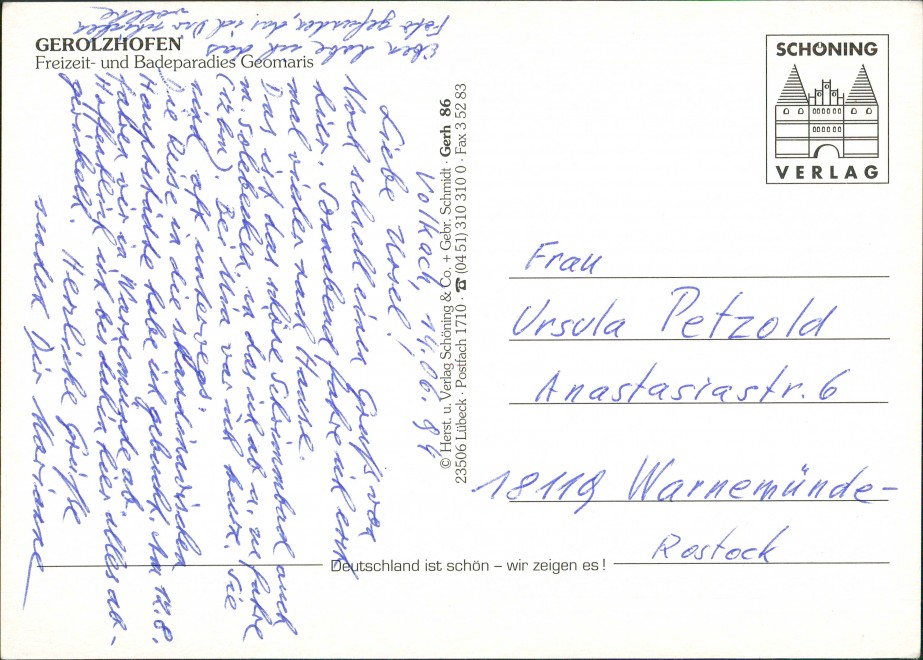 GEROLZHOFEN
Freizeit- und Badeparadies Geomaris
SCHÖNING
VERLAG
© Herst. u. Verlag Schöning & Co. + Gebr. Schmidt · Gerh 86
23506 Lübeck · Postfach 1710 · ☎ (04 51) 310 310 0 · Fax 3 52 83
Volkach, 14.06.94
Liebe Ursel,
Noch schnell einen Gruß von
hier. Sonnabend fahre ich erst
mal wieder nach Hause.
Das ist das schöne Schwimmbad auch
m. Solebecken, in das ich ab u. zu fahre
(12 km). Bei war ich kurz. Sie
sind oft unterwegs.
Die Reise in die skandinavischen
Hauptstädte habe ich gebucht. Am 12.8.
fahren wir in Warnemünde ab.
Hoffentlich ist bis dahin hier alles ab-
gewickelt. Herzliche Grüße
sendet Dir Marianne
Eben habe ich das
Foto gefunden, das ich Dir schicken
wollte
Frau
Ursula Petzold
Anastasiastr. 6
18119 Warnemünde-
Rostock
Deutschland ist schön – wir zeigen es!